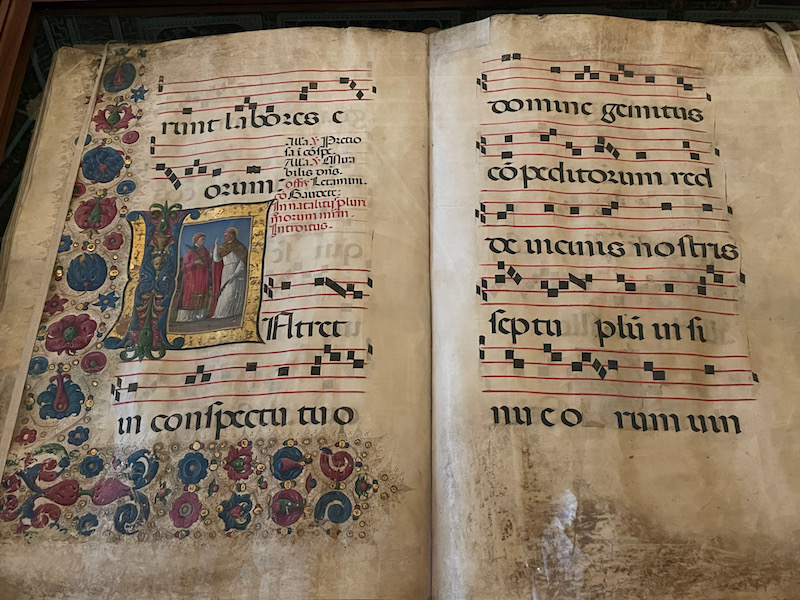 runt labores e
Alla ℣ Pretio
sa i cōspe.
Alla ℣
bilis dn̄s.
orum Letamini.
Gaudete:
In natalitijs
Introitus.
INtret
in conspectu tuo
domine gemitus
cōpeditorum red
de uicinis nostris
septu plū in si
nu eo rum uin